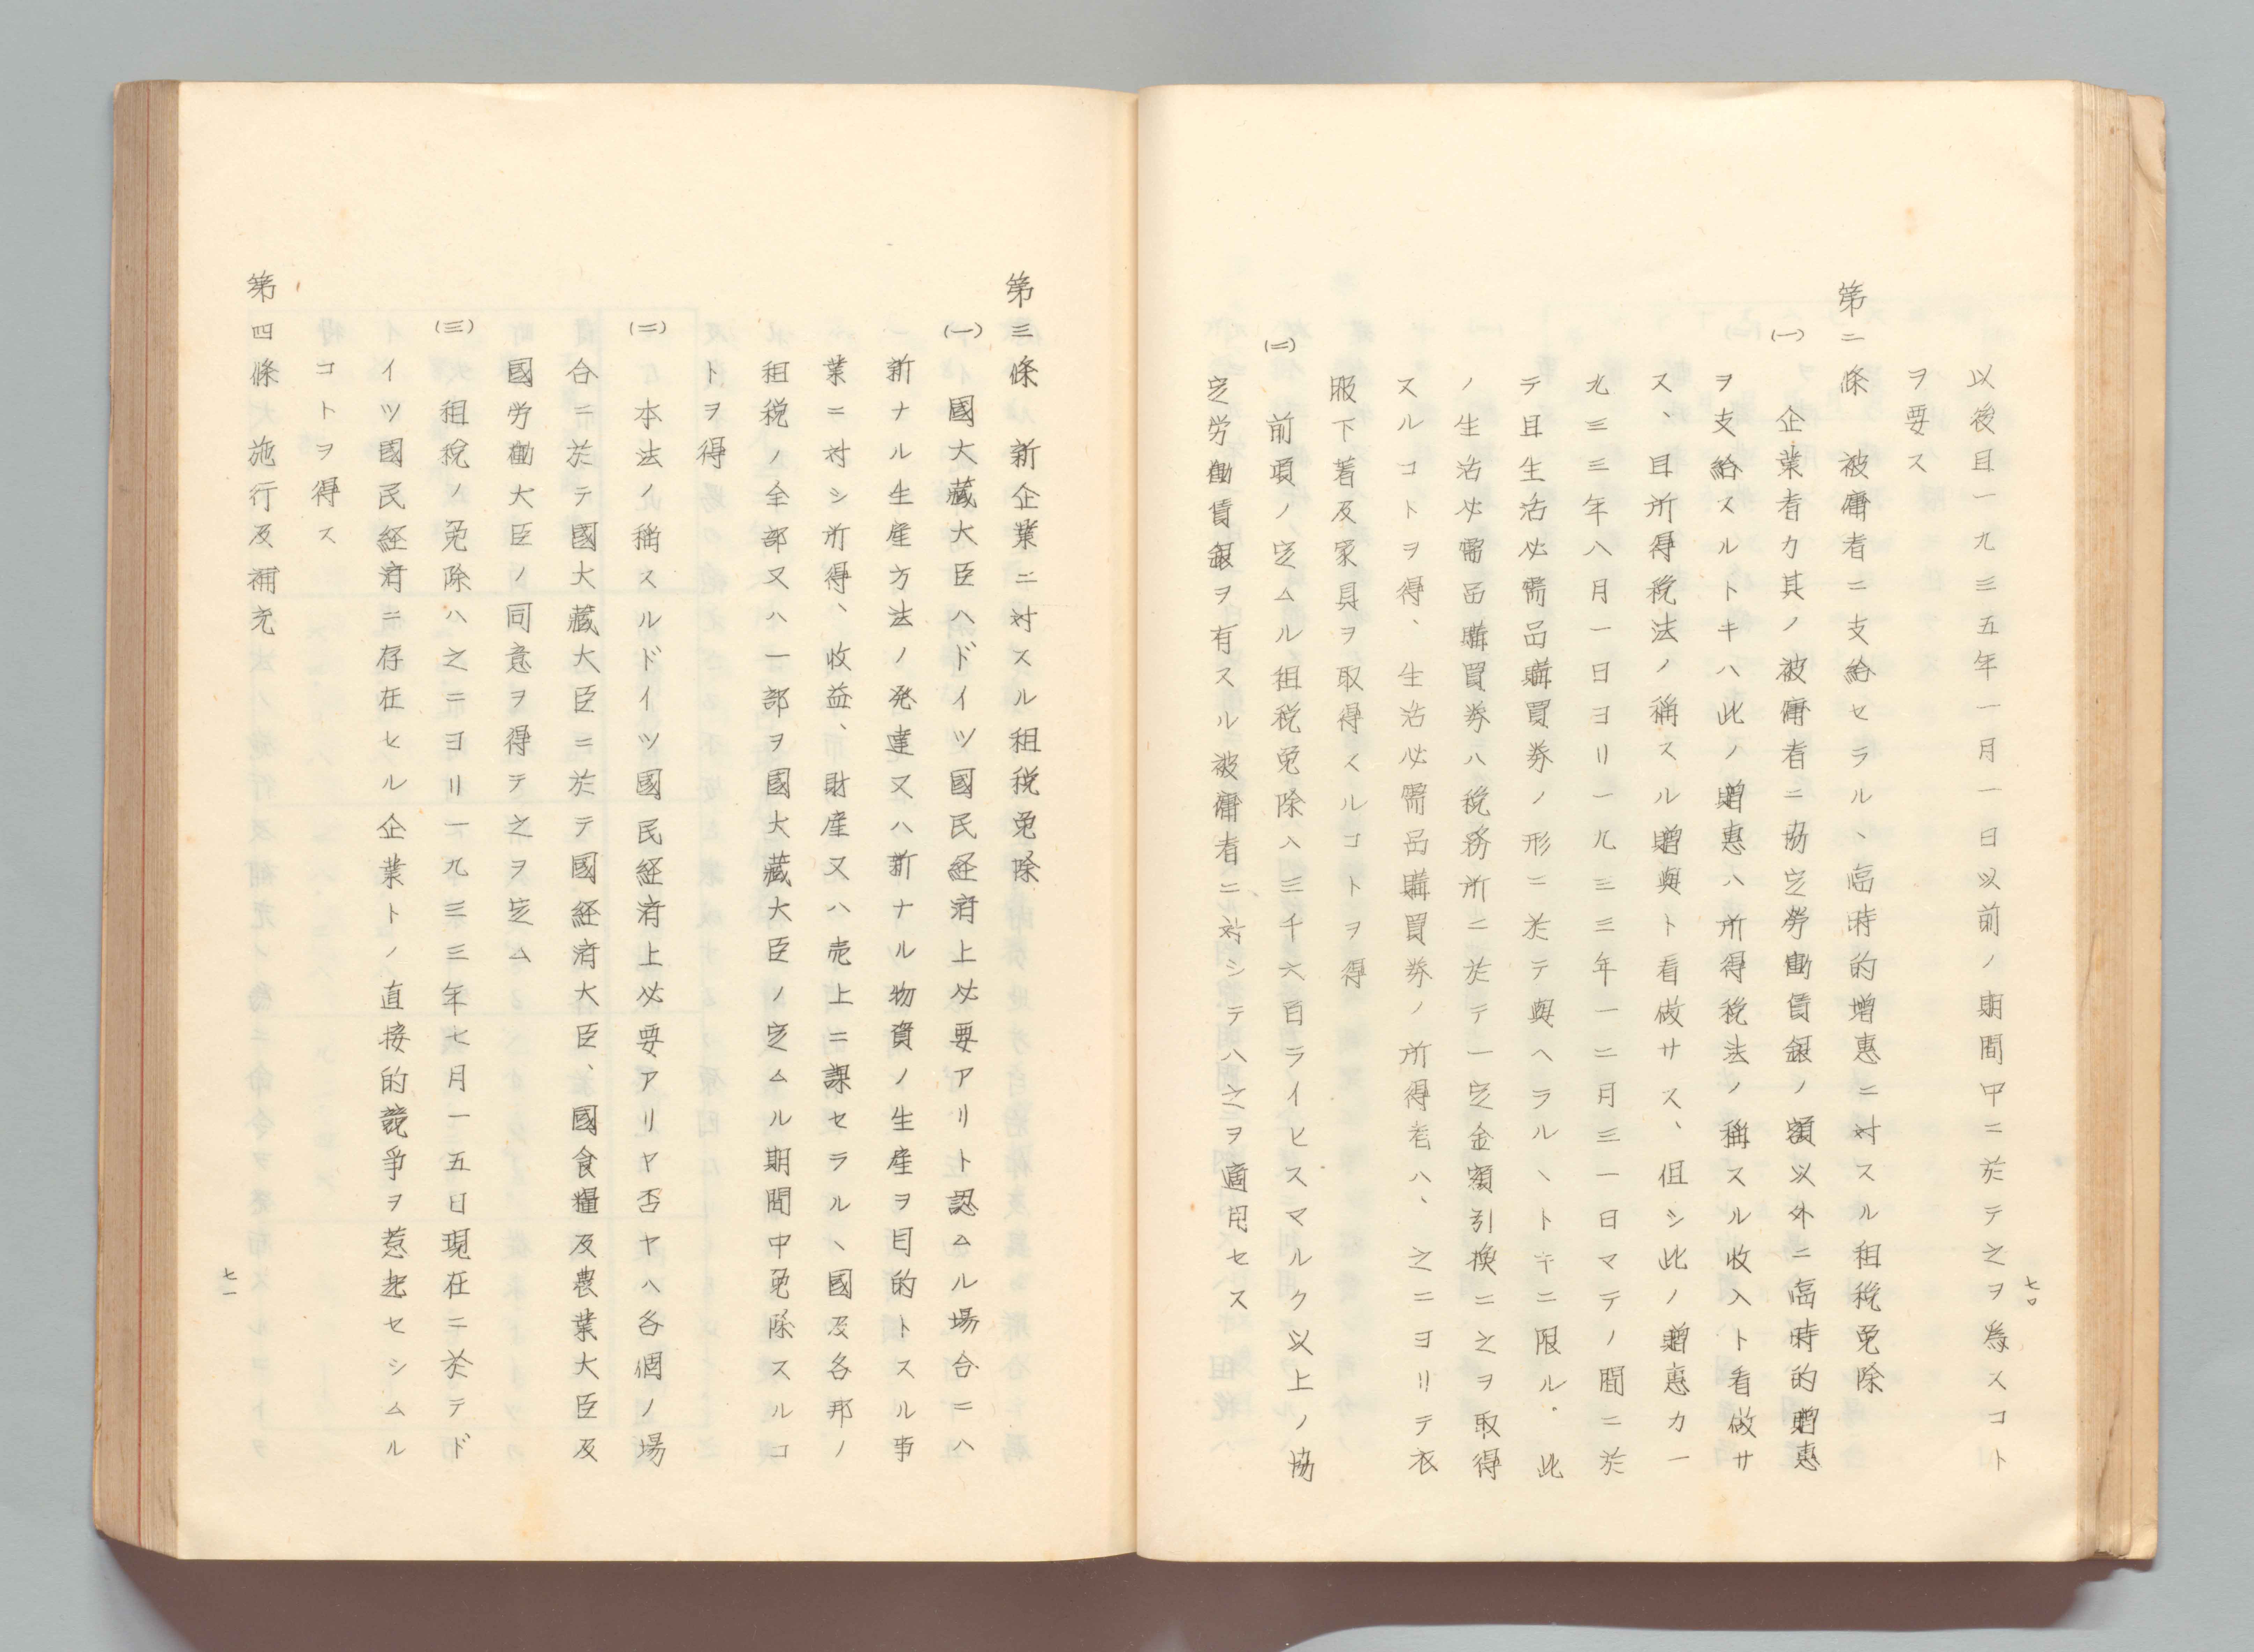 以後且一九三五年一月一日以前ノ期間中ニ於テ之ヲ為スコト
ヲ要ス
第二條 被傭者ニ支給セラル、臨時的増惠ニ対スル租税免除
(一) 企業者カ其ノ被傭者ニ協定勞働賃銀ノ額以外ニ臨時的贈惠
ヲ支給スルトキハ此ノ贈惠ハ所得税法ノ稱スル收入ト看做サ
ス、且所得税法ノ稱スル贈與ト看做サス、但シ此ノ贈惠カ一
九三三年八月一日ヨリ一九三三年一二月三一日マテノ間ニ於
テ且生活必需品購買券ノ形ニ於テ與ヘラル、トキニ限ル。此
ノ生活必需品購買券ハ税務所ニ於テ一定金額引換ニ之ヲ取得
スルコトヲ得、生活必需品購買券ノ所得者ハ、之ニヨリテ衣
服下著及家具ヲ取得スルコトヲ得
(二) 前項ノ定ムル租税免除ハ三千六百ライヒスマルク以上ノ協
定労働賃銀ヲ有スル被傭者ニ対シテハ之ヲ適用セス
七〇
第三條 新企業ニ対スル租税免除
(一) 國大藏大臣ハドイツ國民経済上必要アリト認ムル場合ニハ
新ナル生産方法ノ発達又ハ新ナル物資ノ生産ヲ目的トスル事
業ニ対シ所得、收益、財産又ハ売上ニ課セラル、國及各邦ノ
租税ノ全部又ハ一部ヲ國大藏大臣ノ定ムル期間中免除スルコ
トヲ得
(二) 本法ノ稱スルドイツ國民経済上必要アリヤ否ヤハ各個ノ場
合ニ於テ國大藏大臣ニ於テ國経済大臣、國食糧及農業大臣及
國労働大臣ノ同意ヲ得テ之ヲ定ム
(三) 租税ノ免除ハ之ニヨリ一九三三年七月一五日現在ニ於テド
イツ國民経済ニ存在セル企業トノ直接的競爭ヲ惹起セシムル
コトヲ得ス
第四條 施行及補充
七一